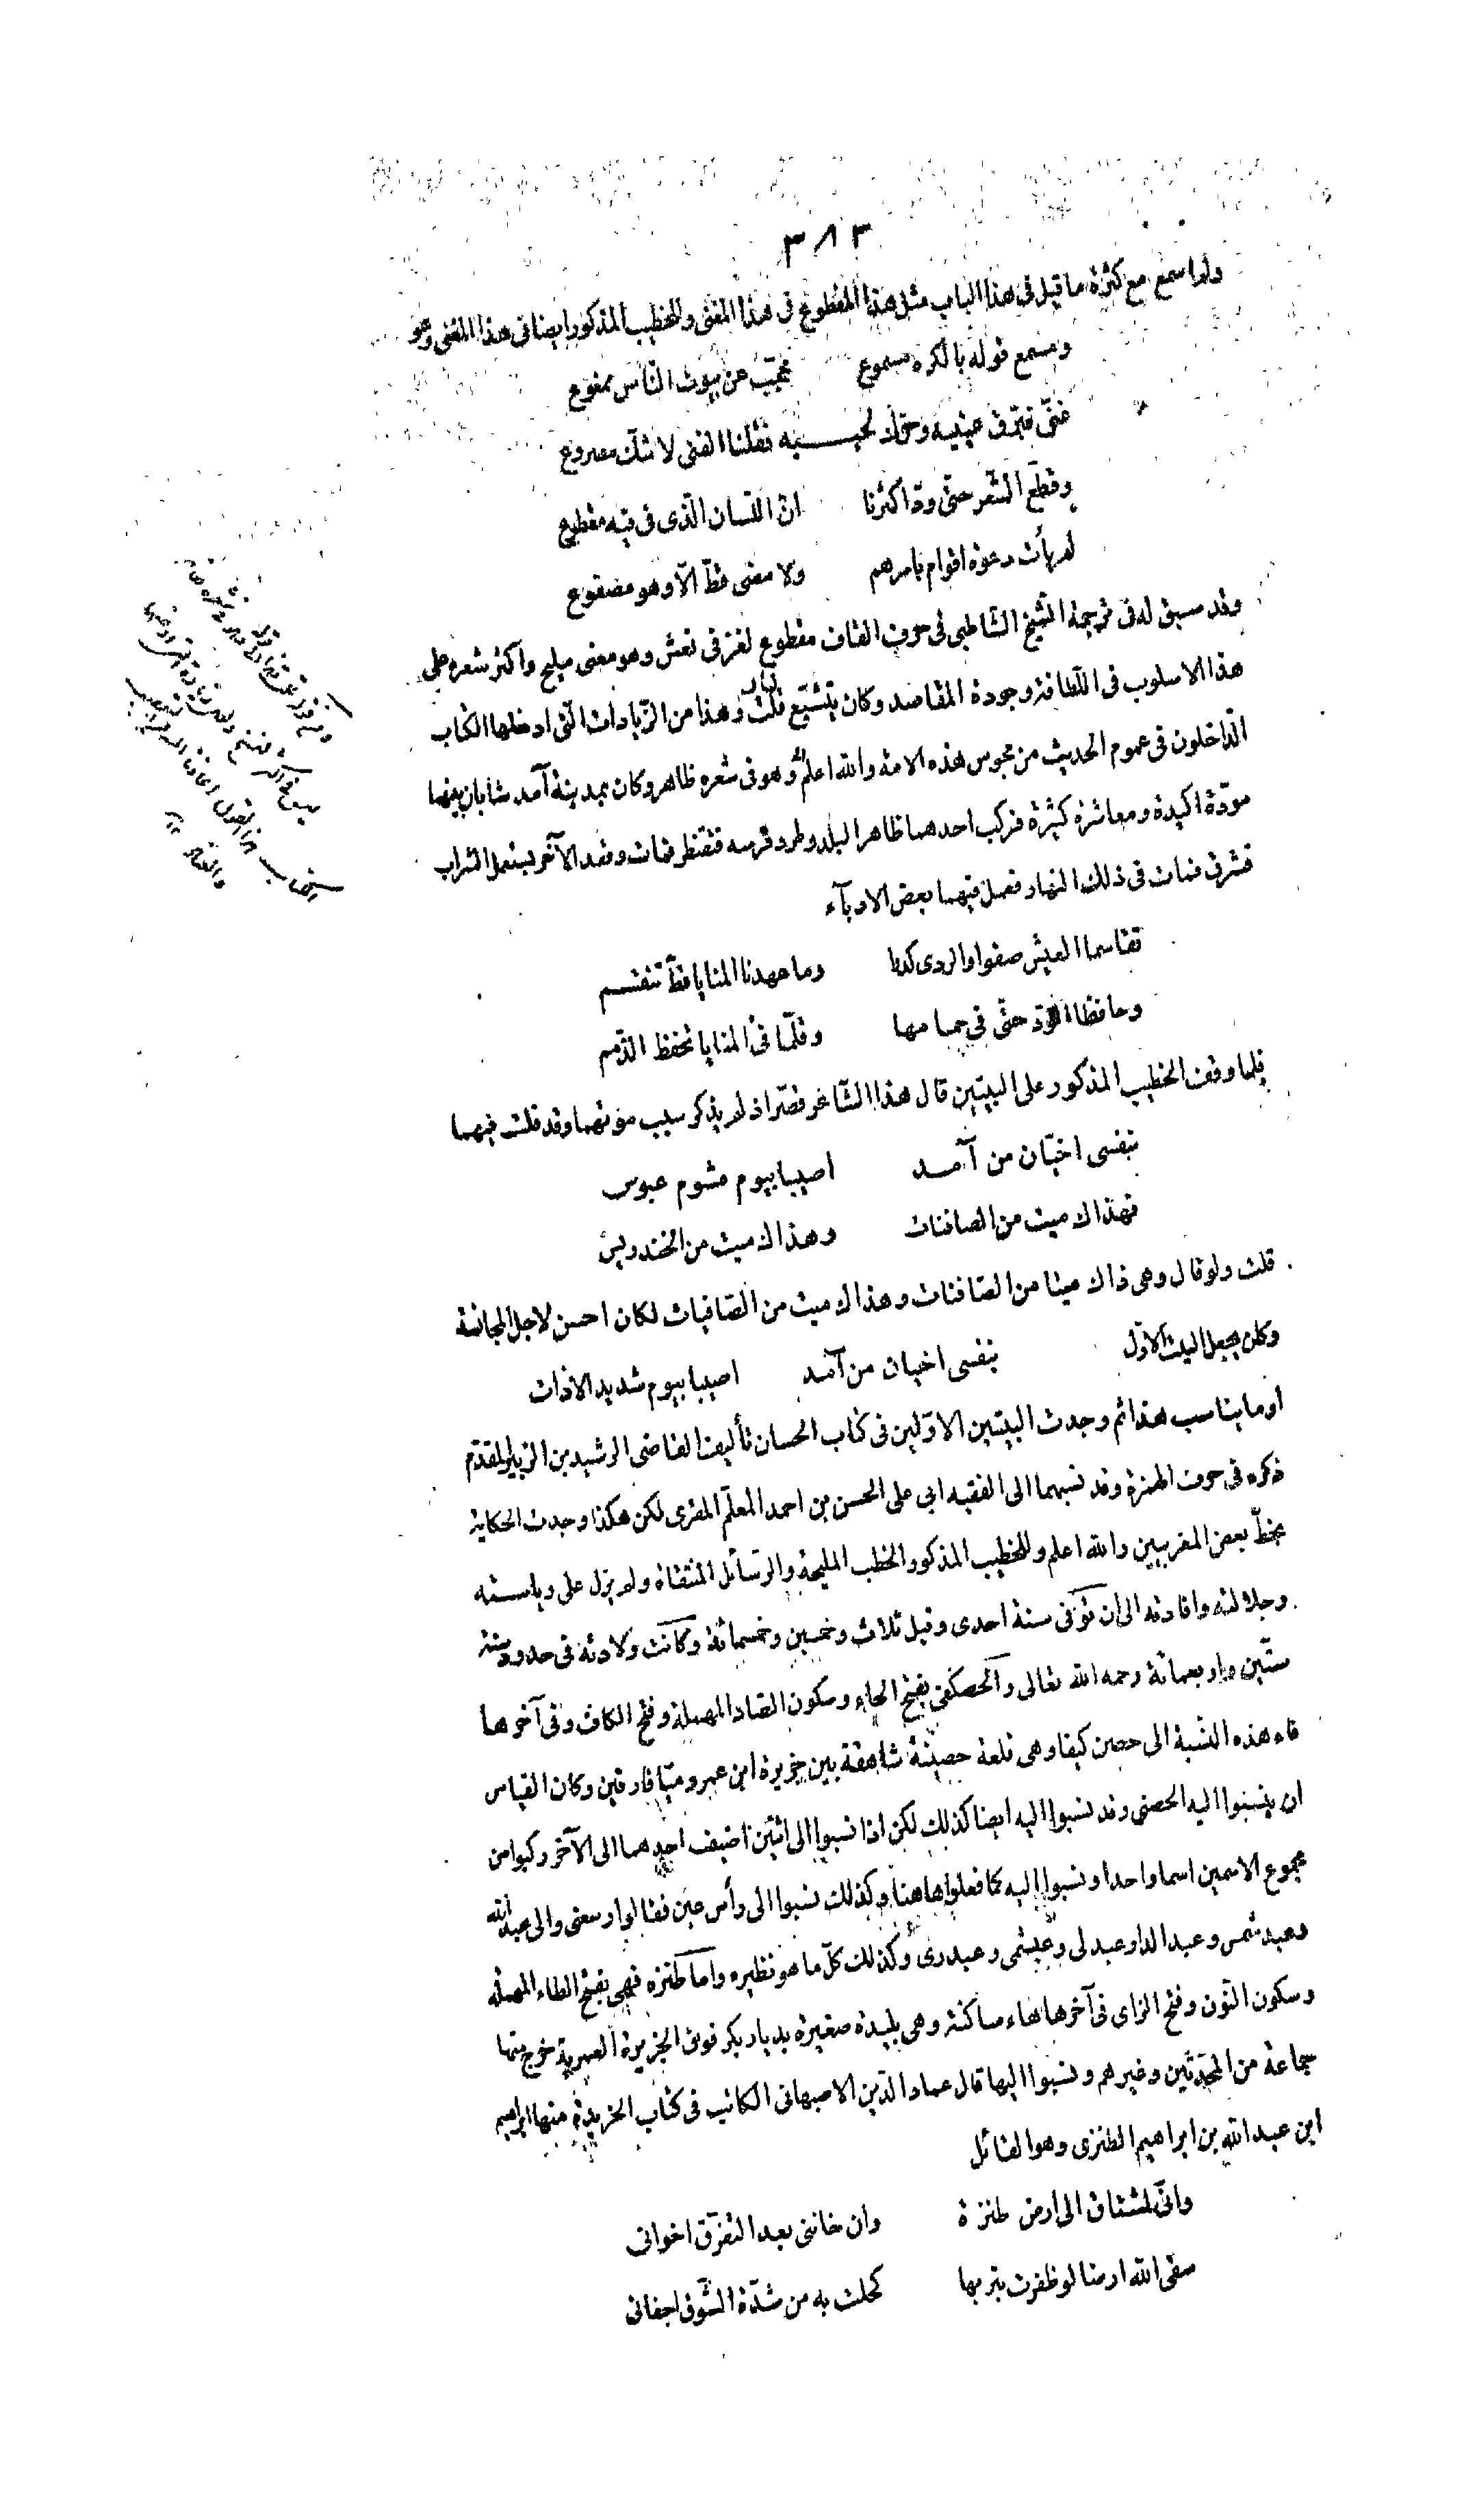 ٣٨٣
ولم اسمع مع كثرة ما قيل فى هذا الباب مثل هذا المقطوع فى هذا المعنى وللخطيب المذكور ايضا فى هذا المعنى وهو
ومسمع قوله بالكره مسموع محجّب عن بيوت النّاس ممنوع
غنّى فبرّق عينيه وحرّك لحييه فقلنا الفتى لا شكّ مصروع
وقطّع الشّعر حتّى ودّ اكثرنا انّ اللّسان الّذى فى فيه مقطوع
لم يأت دعوة اقوام بامرهم ولا مضى قطّ الّا وهو مصفوع
وقد سبق له فى ترجمة الشّيخ الشّاطبى فى حرف القاف مقطوع لغز فى نعش وهو معنى مليح واكثر شعره على
هذا الاسلوب فى اللّطافة وجودة المقاصد وكان يتشيّع قلت وهذا من الزّيادات الّتى ادخلها الكتاب
الدّاخلون فى عموم الحديث من مجوس هذه الامة والله اعلم وهو فى شعره ظاهر وكان بمدينة آمد شابان بينهما
مودّة اكيدة ومعاشرة كثيرة فركب احدهما ظاهر البلد وطرد فرسه فتقنطر فمات وقعد الآخر يستعمل الشراب
فشرق فمات فى ذلك النهار فعمل فيهما بعض الادبآء
تقاسما العيش صفوا والردى كدرا وما عهدنا المنايا قطّ تنقسم
وحافظا الودّ حتّى فى حمامهما وقلّما فى المنايا تحفظ الذّمم
فلما وقف الخطيب المذكور على البيتين قال هذا الشّاعر قصّر اذ لم يذكر سبب موتهما وقد قلت فيهما
بنفسى اخيّان من آمد اصيبا بيوم مشوم عبوس
فهذاك ميت من الصافنات وهذاك ميت من الخندريس
قلت ولو قال وهى ذاك ميتا من الصّافنات وهذاك ميت من الصّافيات لكان احسن لاجل المجانسة
وكان يجعل البيت الاوّل بنفسى اخيان من آمد اصيبا بيوم شديد الاذات
او ما يناسب هذا ثم وجدت البيتين الاوّلين فى كتاب الحسان تأليف القاضى الرشيد بن الزبير المقدّم
ذكره فى حرف الهمزة وقد نسبهما الى الفقيه ابى على الحسن بن احمد المعلّم المقرى لكن هكذا وجدت الحكاية
بخطّ بعض المغربيين والله اعلم وللخطيب المذكور الخطب المليحة والرسائل المنتقاة ولم يزل على رياسته
وجلالته وافادته الى ان توفّى سنة احدى وقيل ثلاث وخمسين وخمسمائة وكانت ولادته فى حدود سنة
ستّين واربعمائة رحمه الله تعالى والحصكفى بفتح الحاء وسكون الصّاد المهملة وفتح الكاف وفى آخرها
فاء هذه النّسبة الى حصن كيفا وهى قلعة حصينة شاهقة بين جزيرة ابن عمر وميّافارقين وكان القياس
ان ينسبوا اليه الحصنى وقد نسبوا اليه ايضا كذلك لكن اذا نسبوا الى اثنين اضيف احدهما الى الآخر ركبوا من
مجموع الاسمين اسما واحدا ونسبوا اليه كما فعلوا هاهنا وكذلك نسبوا الى رأس عين فقالوا رسعنى والى عبد الله
وعبد شمس وعبد الدار عبدلى وعبشمى وعبدرى وكذلك كلّ ما هو نظيره واما طنزه فهى بفتح الطاء المهملة
وسكون النّون وفتح الزاى فى آخرها هاء ساكنة وهى بليدة صغيرة بديار بكر فوق الجزيرة العمرية خرج منها
جماعة من المحدّثين وغيرهم ونسبوا اليها قال عماد الدّين الاصبهانى الكاتب فى كتاب الخريدة منها ابراهيم
ابن عبد الله بن ابراهيم الطنزى وهو القائل
وانّى لمشتاق الى ارض طنزة وان خاننى بعد التفرّق اخوانى
سقى الله ارضا لو ظفرت بتربها كحلت به من شدّة الشّوق اجفانى